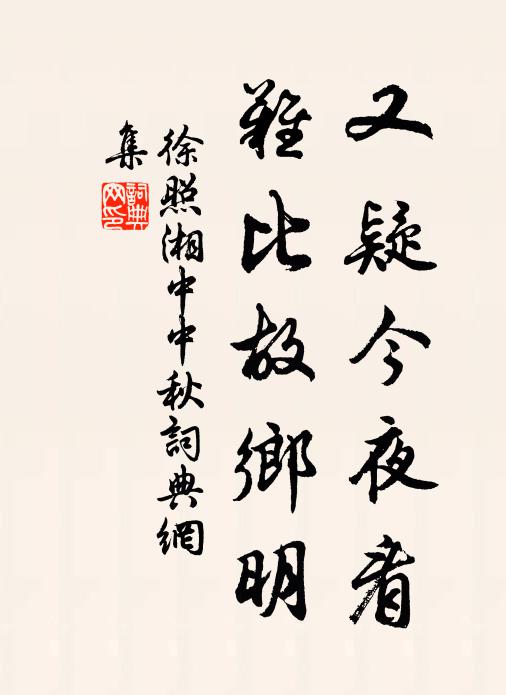 又疑今夜看
難比故鄉明
徐照湘中中秋詞典網
集
詞典網印